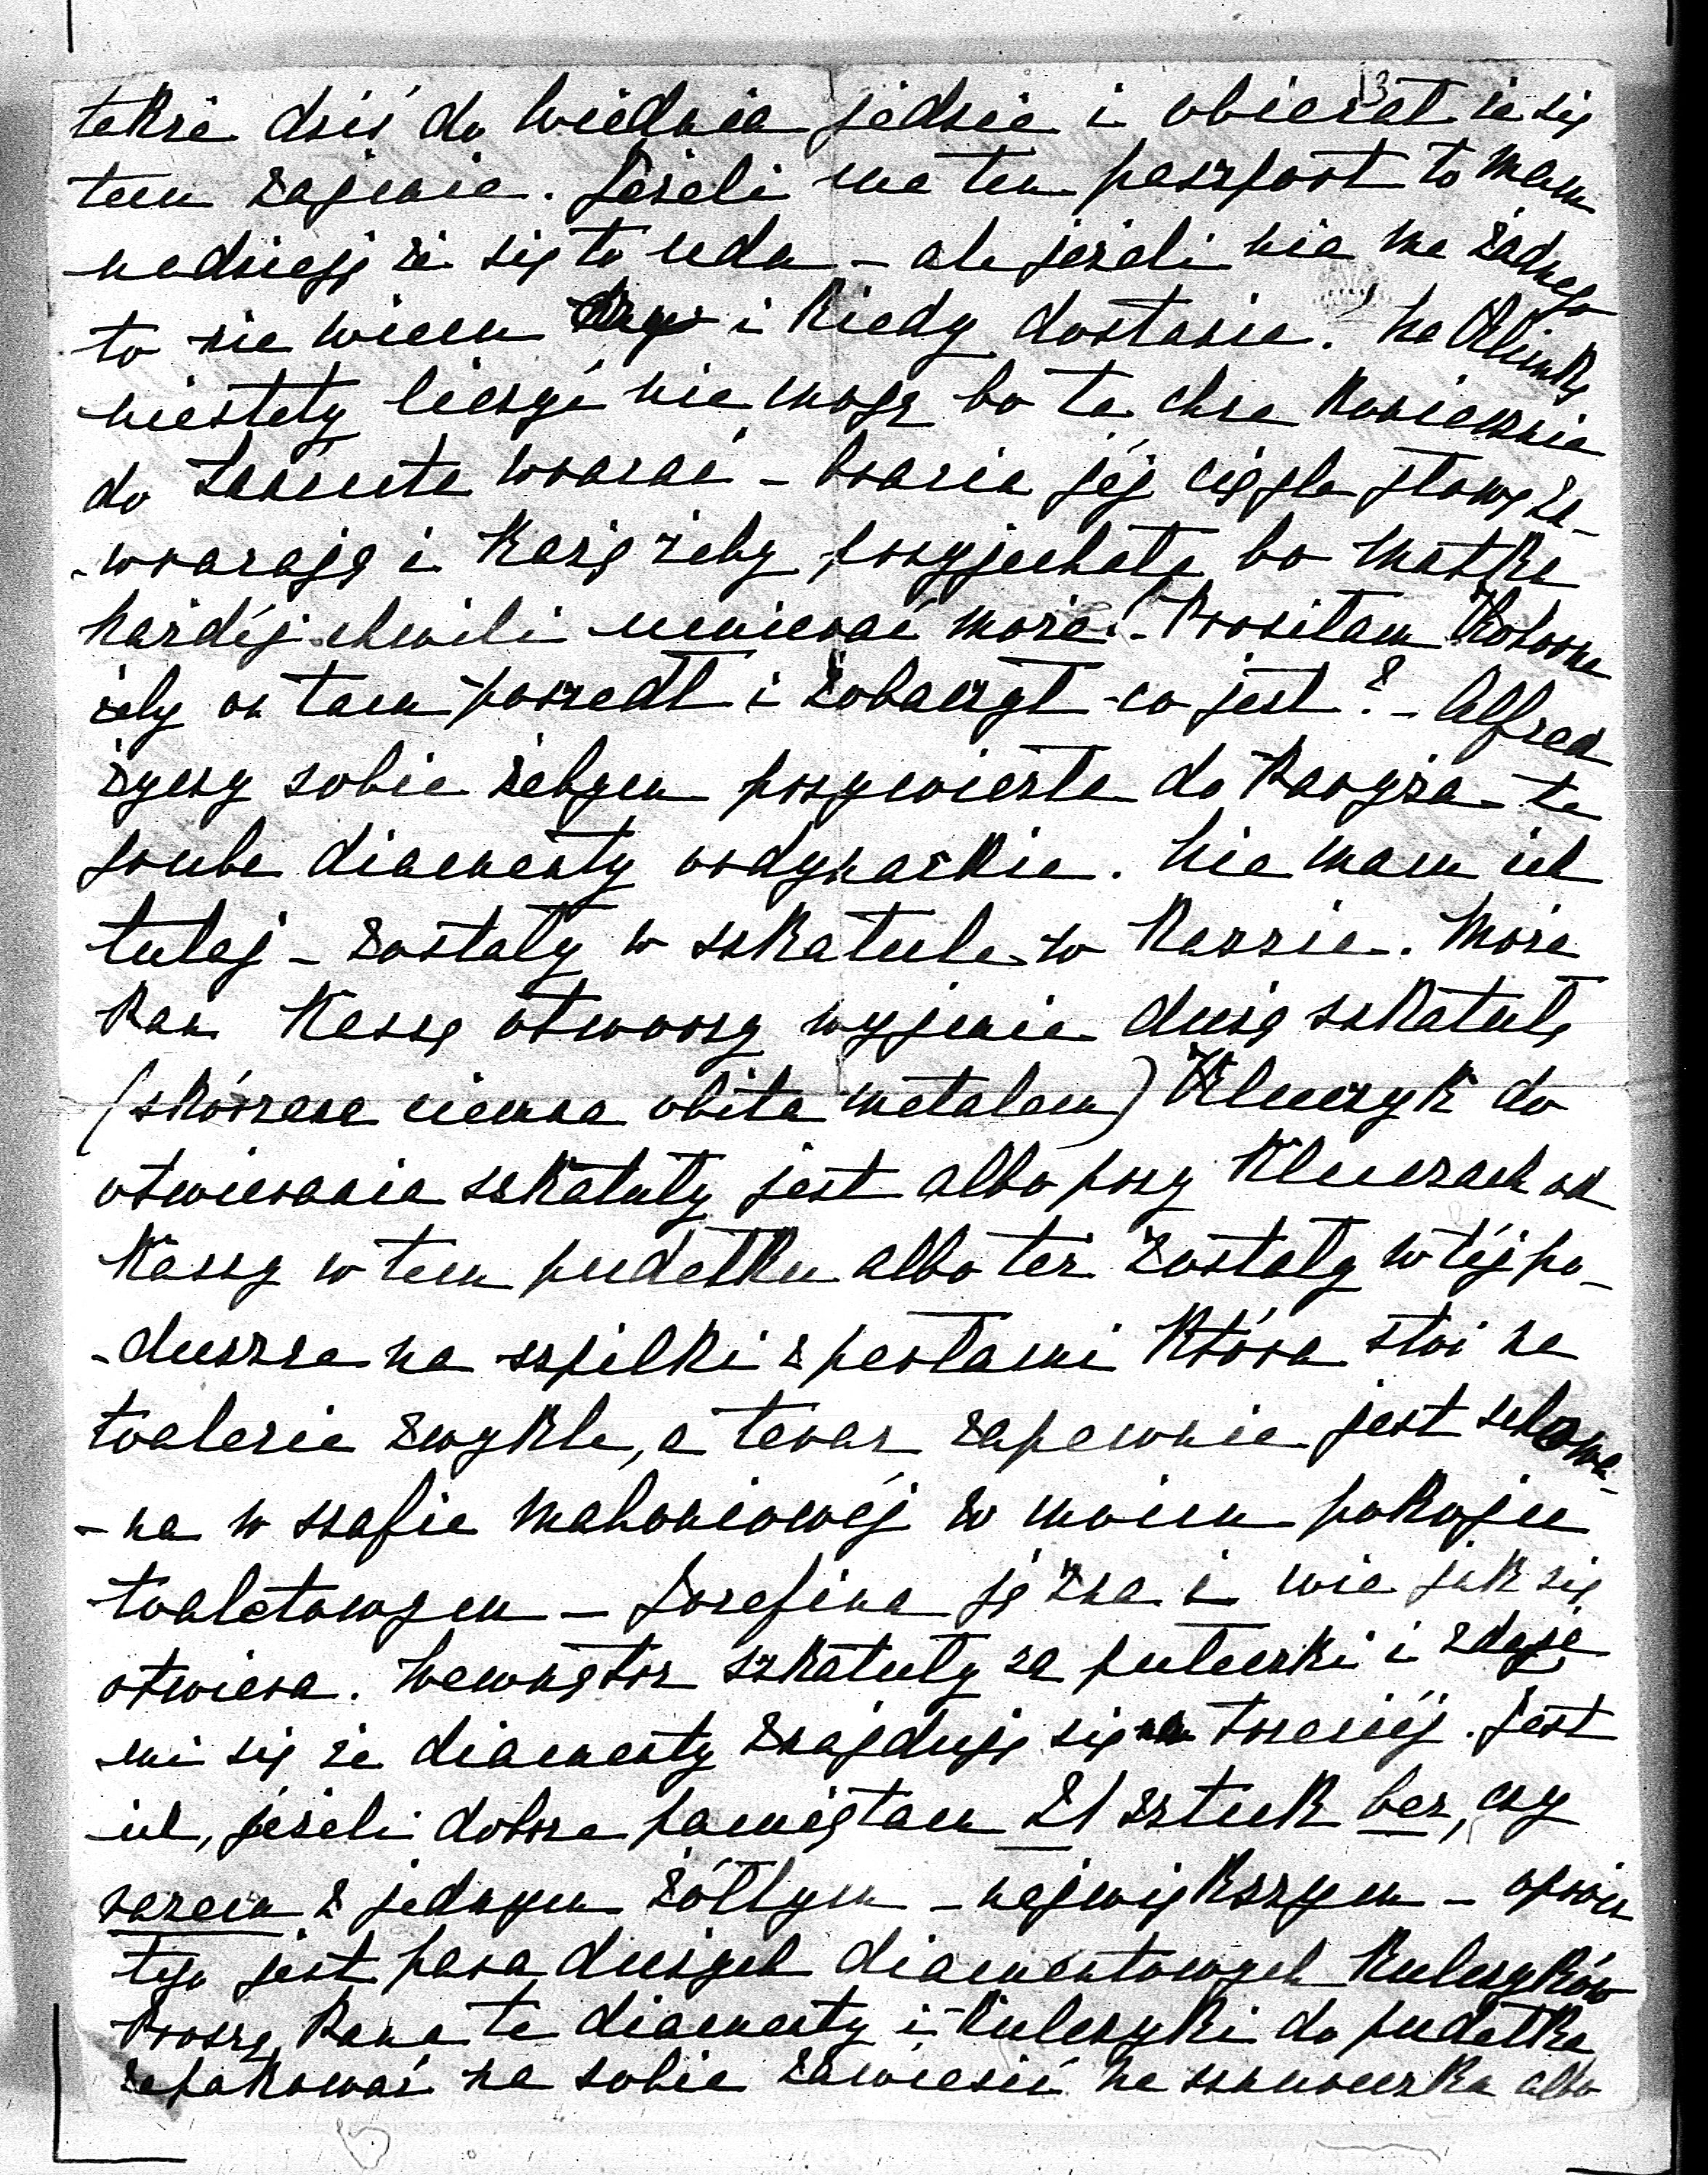 13
także dziś do Wiednia jedzie i obiecał że się
tem zajmie. Jeżeli ma ten paszport to mam
nadzieję że się to uda – ale jeżeli nie ma żadnego
to nie wiem i kiedy dostanie. Na Klimkę
niestety liczyć nie mogę bo ta chce koniecznie
do Łańcuta wracać – bracia jéj ciągle głowę za-
-wracają i każą żeby przyjechała bo matka
każdéj chwili umierać może. – Prosiłam
żeby on tam poszedł i zobaczył co jest? – Alfred
życzy sobie żebym przywiozła do Paryża te
grube diamenty ordynackie. Nie mam ich
tutaj – zostały w szkatule w Kassie. Może
Pan Kassę otworzy wyjmie dużą szkatułę
(skórzana ciemna obita metalem) Kluczyk do
otwierania szkatuły jest albo przy kluczach od
Kassy w tem pudełku albo też zostały w téj po-
-duszce na szpilki z perłami która stoi na
toalecie zwykle, a teraz zapewnie jest schowa-
-na w szafie mahoniowéj w moim pokoju
toaletowym – Józefina ją zna i wie jak się
otwiera. Wewnątrz szkatuły są puteczki i zdaje
mi się że diamenty znajdują się na trzeciéj. Jest
ich, jeżeli dobrze pamiętam 21 sztuk bez, czy
razem z jednym żółtym – największym – oprócz
tego jest para dużych diamentowych kulczyków
Proszę Pana te diamenty i kulczyki do pudełka
zapakować na sobie zawiesić na sznureczku albo